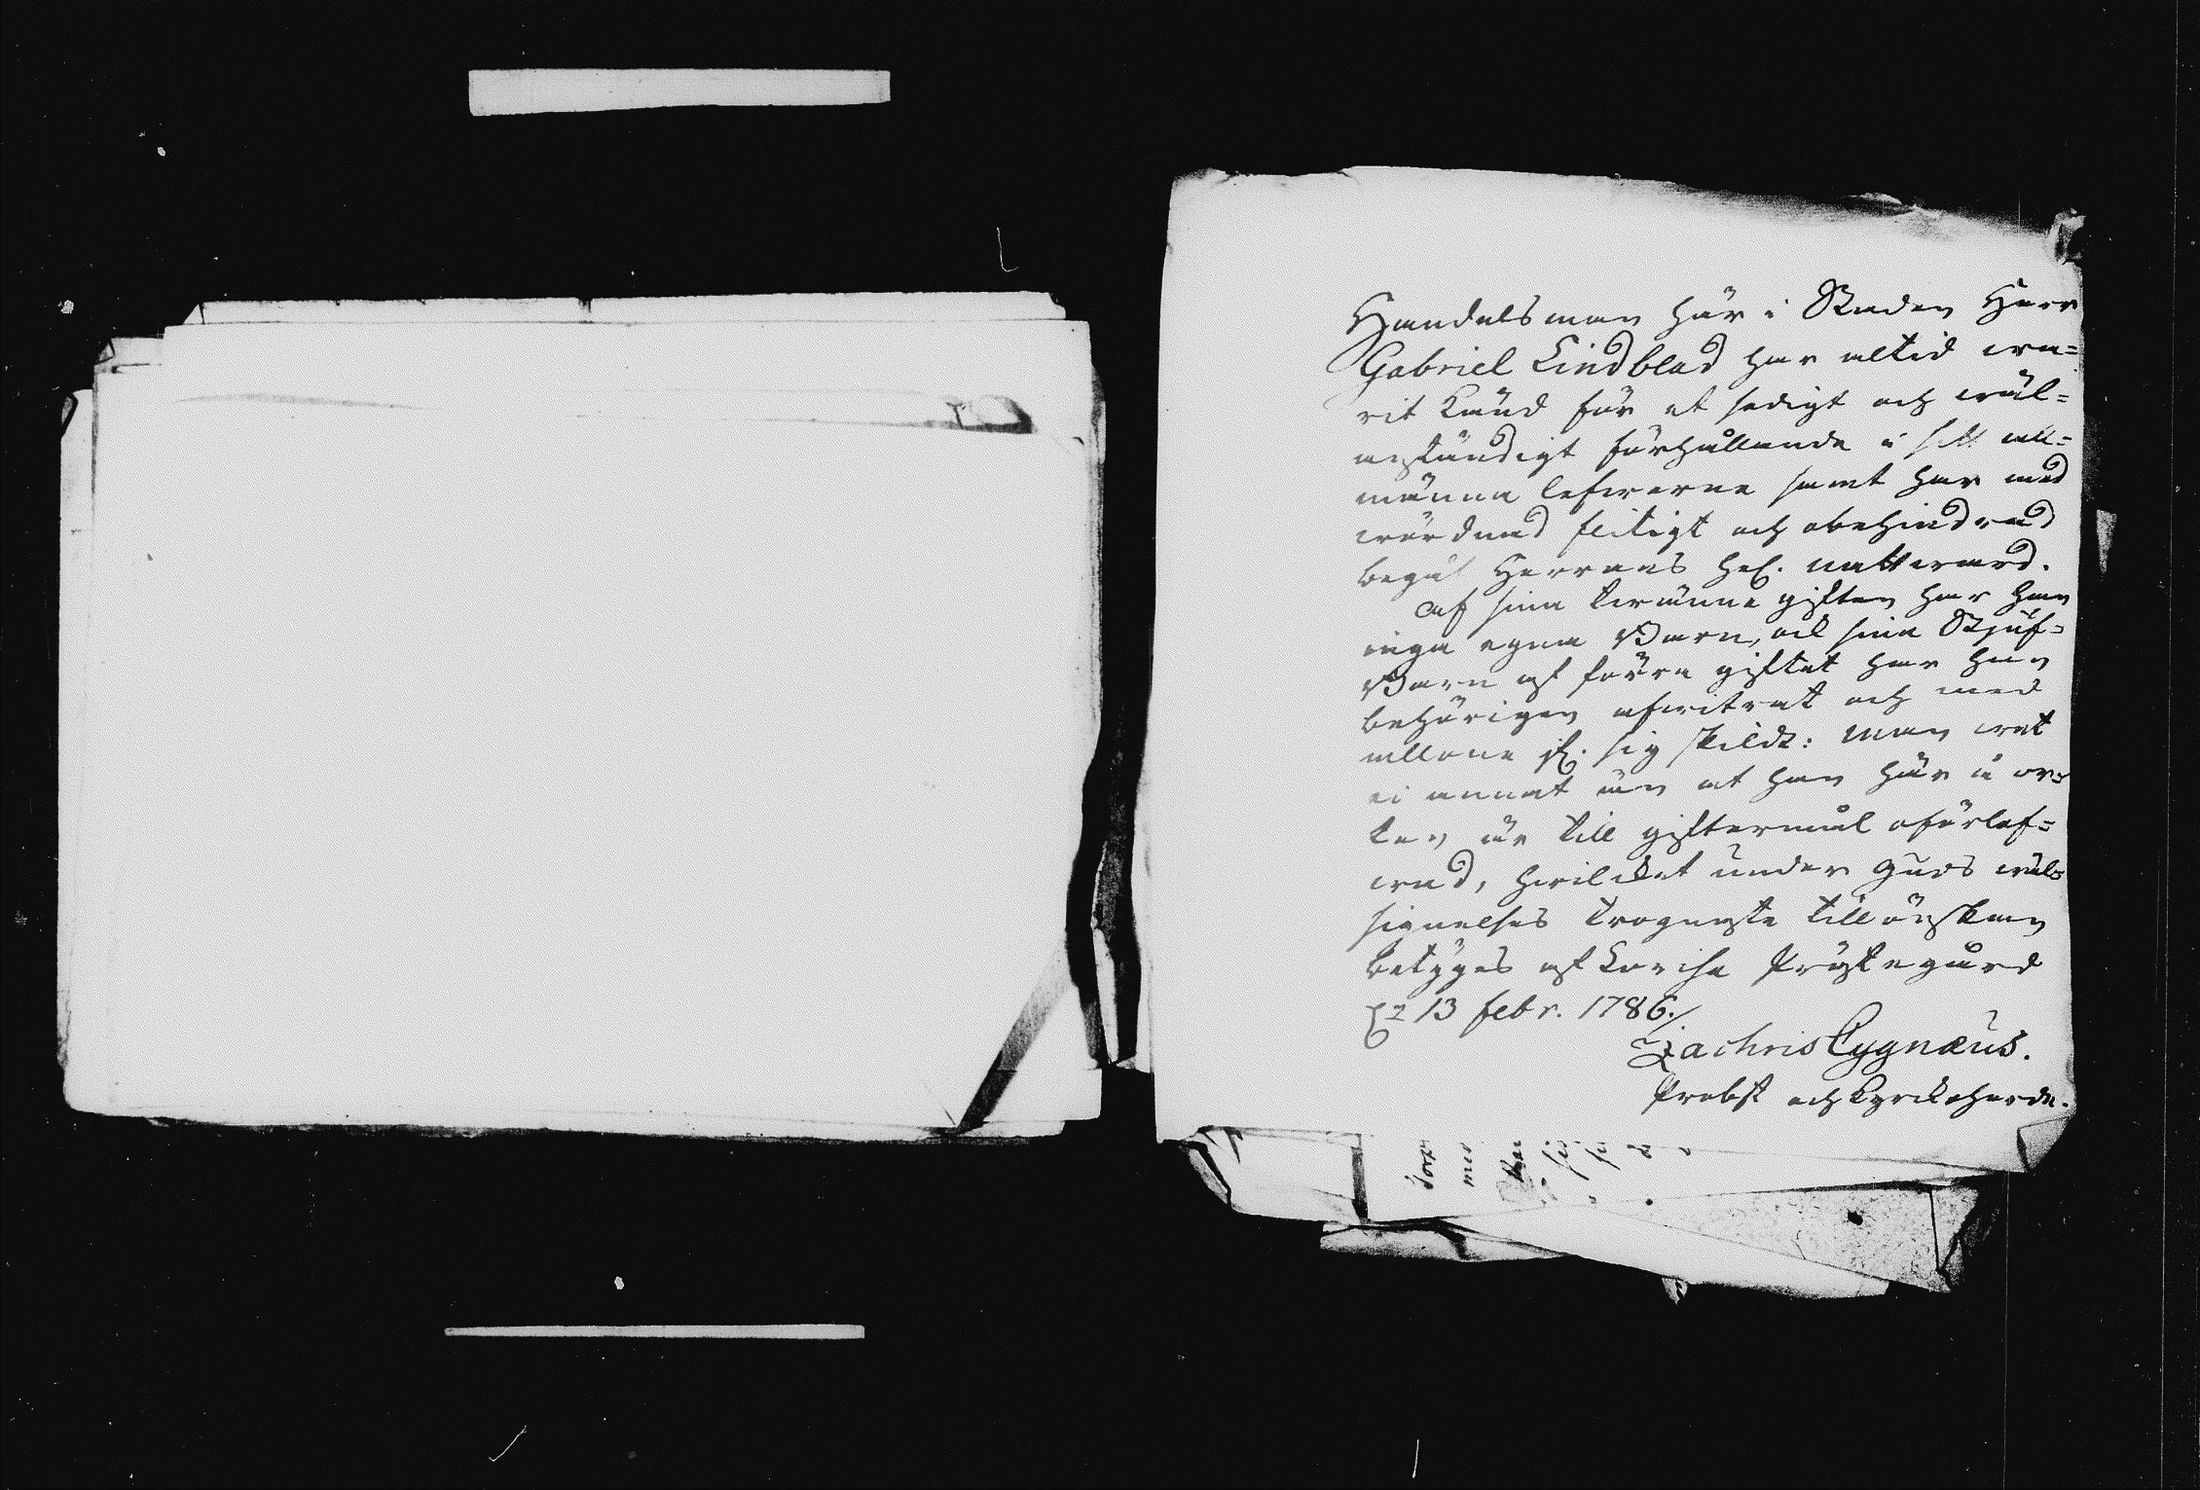 Handelsman här i Staden Herr
Gabriel Lindblad har altid wa=
rit känd för et sedigt och wäl=
anständigt förhållande i sitt all=
männa lefwerne samt har med
wördnad flitigt och obehindrad
begåt Herrans hel. nattward.
af sina twänne giften har han
inga egna Barn, ock sina Stjuf=
Barn af förra giftet har han
behörigen afwitrat och med
allone sig skildt: man wet
ei annat än at han här å or=
ten är till giftermål oförlof=
wad, hwilcket under Guds wäl=
signelses trognaste tillönskan
betyges af Lovisa Prästegård
d. 13 febr. 1786./
Zachris Cygnæus.
Probst och Kyrckoherde.